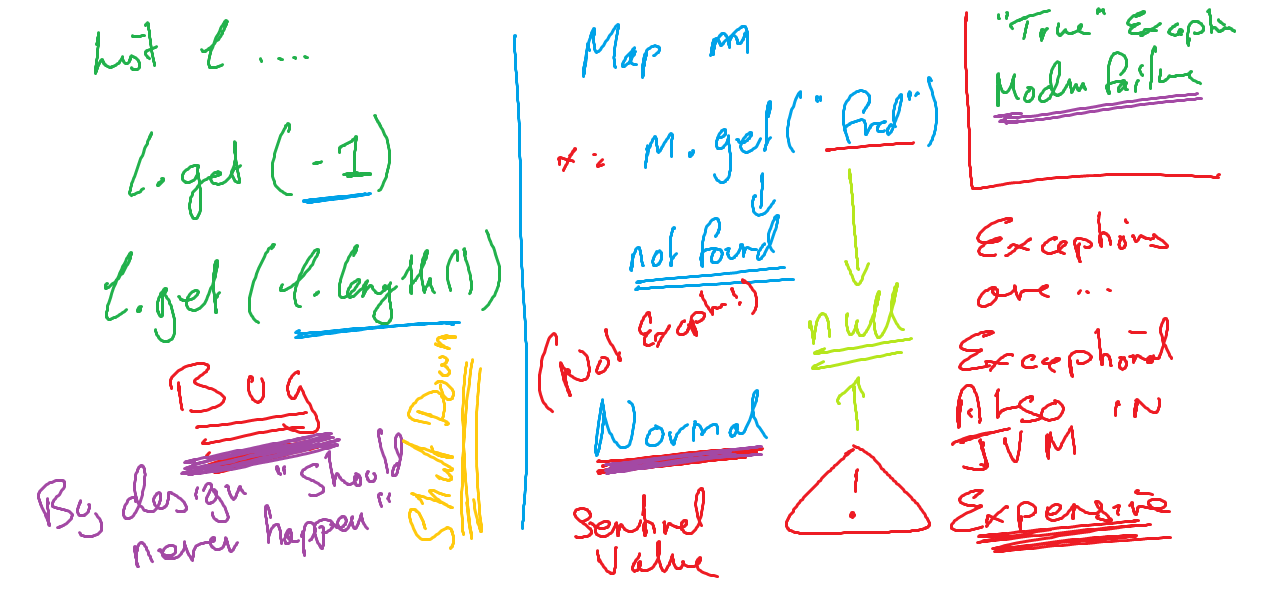 List l ....
l.get (-1)
l.get (l.length())
Bug
By design "Should
never happen"
Shut Down
Map m
x = m.get("fred")
not found
(Not Exceptn!)
null
Normal
!
Sentinel
Value
"True" Exceptn
Modm failure
Exceptions
are ...
Exceptional
ALSO IN
JVM
Expensive